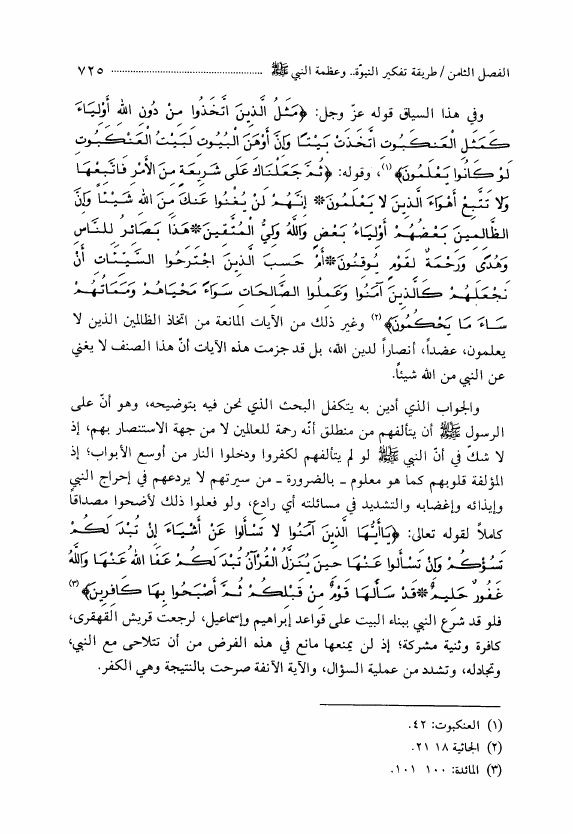 الفصل الثامن / طريقة تفكير النبوّة.. وعظمة النبي ﷺ ........................................ ٧٢٥
وفي هذا السياق قوله عزّ وجل: ﴿مَثَلُ الَّذِينَ اتَّخَذُوا مِنْ دُونِ اللهِ أَوْلِيَاءَ
كَمَثَلِ الْعَنكَبُوتِ اتَّخَذَتْ بَيْتًا وَإِنَّ أَوْهَنَ الْبُيُوتِ لَبَيْتُ الْعَنْكَبُوتِ
لَوْ كَانُوا يَعْلَمُونَ﴾(١)، وقوله: ﴿ثُمَّ جَعَلْنَاكَ عَلَى شَرِيعَةٍ مِنَ الأَمْرِ فَاتَّبِعْهَا
وَلَا تَتَّبِعْ أَهْوَاءَ الَّذِينَ لَا يَعْلَمُونَ* إِنَّهُمْ لَنْ يُغْنُوا عَنكَ مِنَ اللهِ شَيْئًا وَإِنَّ
الظَّالِمِينَ بَعْضُهُمْ أَوْلِيَاءُ بَعْضٍ وَاللَّهُ وَلِيُّ الْمُتَّقِينَ*هَذَا بَصَائِرُ لِلنَّاسِ
وَهُدًى وَرَحْمَةٌ لِقَوْمٍ يُوقِنُونَ*أَمْ حَسِبَ الَّذِينَ اجْتَرَحُوا السَّيِّئَاتِ أَنْ
نَجْعَلَهُمْ كَالَّذِينَ آمَنُوا وَعَمِلُوا الصَّالِحَاتِ سَوَاءً مَحْيَاهُمْ وَمَمَاتُهُمْ
سَاءَ مَا يَحْكُمُونَ﴾(٢) وغير ذلك من الآيات المانعة من اتخاذ الظالمين الذين لا
يعلمون، عضداً، أنصاراً لدين الله، بل قد جزمت هذه الآيات أنّ هذا الصنف لا يغني
عن النبي من الله شيئاً.
والجواب الذي أدين به يتكفل البحث الذي نحن فيه بتوضيحه، وهو أنّ على
الرسول ﷺ أن يتألفهم من منطلق أنّه رحمة للعالمين لا من جهة الاستنصار بهم، إذ
لا شكّ في أنّ النبي ﷺ لو لم يتألفهم لكفروا ودخلوا النار من أوسع الأبواب؛ إذ
المؤلفة قلوبهم كما هو معلوم ـ بالضرورة ـ من سيرتهم لا يردعهم في إحراج النبي
وإيذائه وإغضابه والتشديد في مسائلته أي رادع، ولو فعلوا ذلك لأضحوا مصداقاً
كاملاً لقوله تعالى: ﴿يَاأَيُّهَا الَّذِينَ آمَنُوا لَا تَسْأَلُوا عَنْ أَشْيَاءَ إِنْ تُبْدَ لَكُمْ
تَسُؤْكُمْ وَإِنْ تَسْأَلُوا عَنْهَا حِينَ يُنَزَّلُ الْقُرْآنُ تُبْدَ لَكُمْ عَفَا اللهُ عَنْهَا وَاللَّهُ
غَفُورٌ حَلِيمٌ*قَدْ سَأَلَهَا قَوْمٌ مِنْ قَبْلِكُمْ ثُمَّ أَصْبَحُوا بِهَا كَافِرِينَ﴾(٣)
فلو قد شرع النبي ببناء البيت على قواعد إبراهيم وإسماعيل، لرجعت قريش القهقرى،
كافرة وثنية مشركة؛ إذ لن يمنعها مانع في هذه الفرض من أن تتلاحى مع النبي،
وتجادله، وتشدد من عملية السؤال، والآية الآنفة صرحت بالنتيجة وهي الكفر.
(١) العنكبوت: ٤٢.
(٢) الجاثية ١٨ ٢١.
(٣) المائدة: ١٠٠ ١٠١.